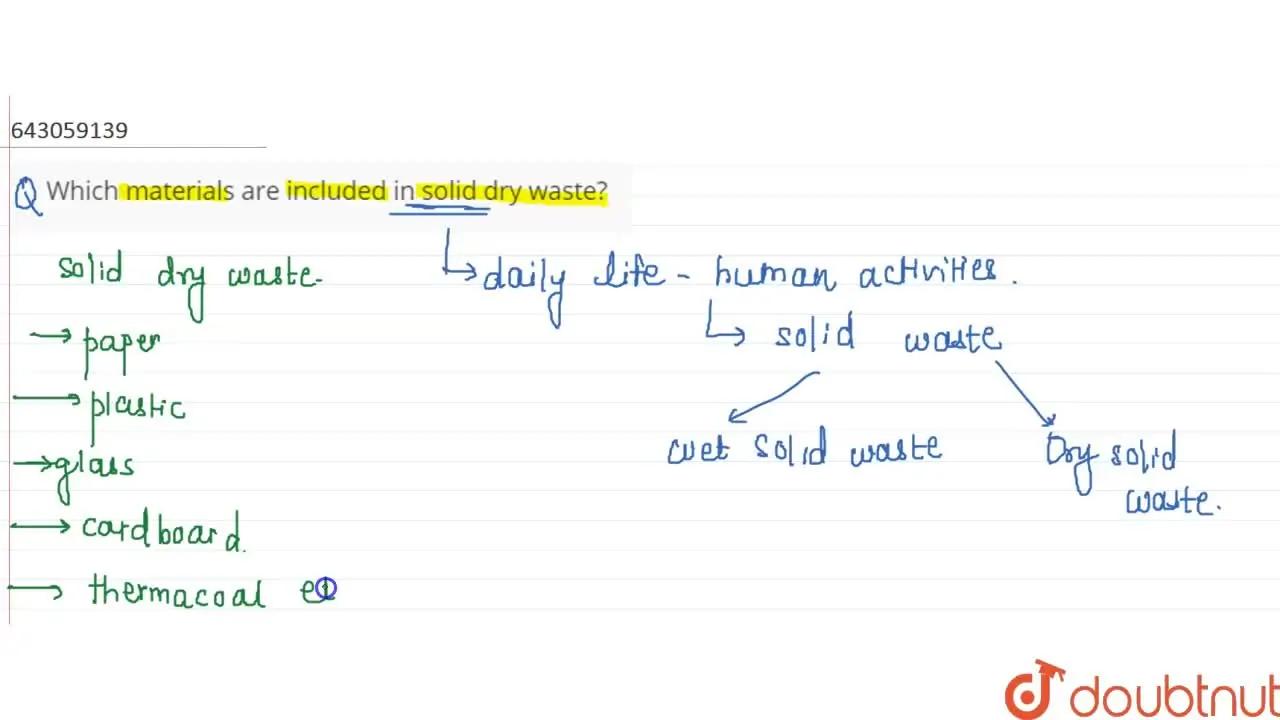 643059139
Q Which materials are included in solid dry waste?
solid dry waste.
→ daily life - human activities.
→ solid waste
→ paper
→ plastic
wet solid waste
Dry solid
waste.
→ glass
→ cardboard.
→ thermacoal et
doubtnut